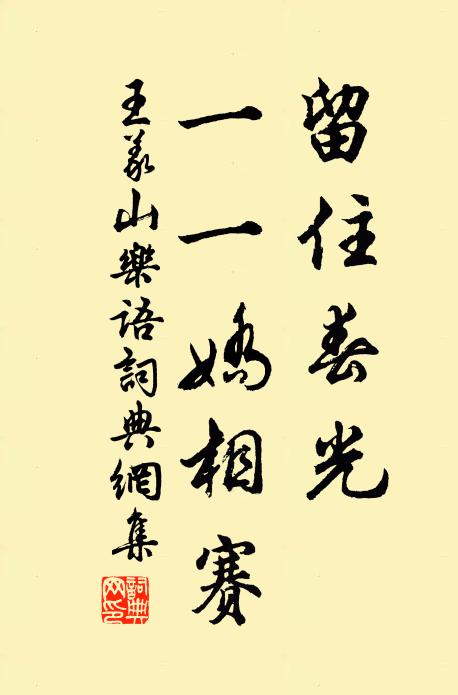 留住春光
一一嬌相賽
王義山樂語詞典網集
詞典網印